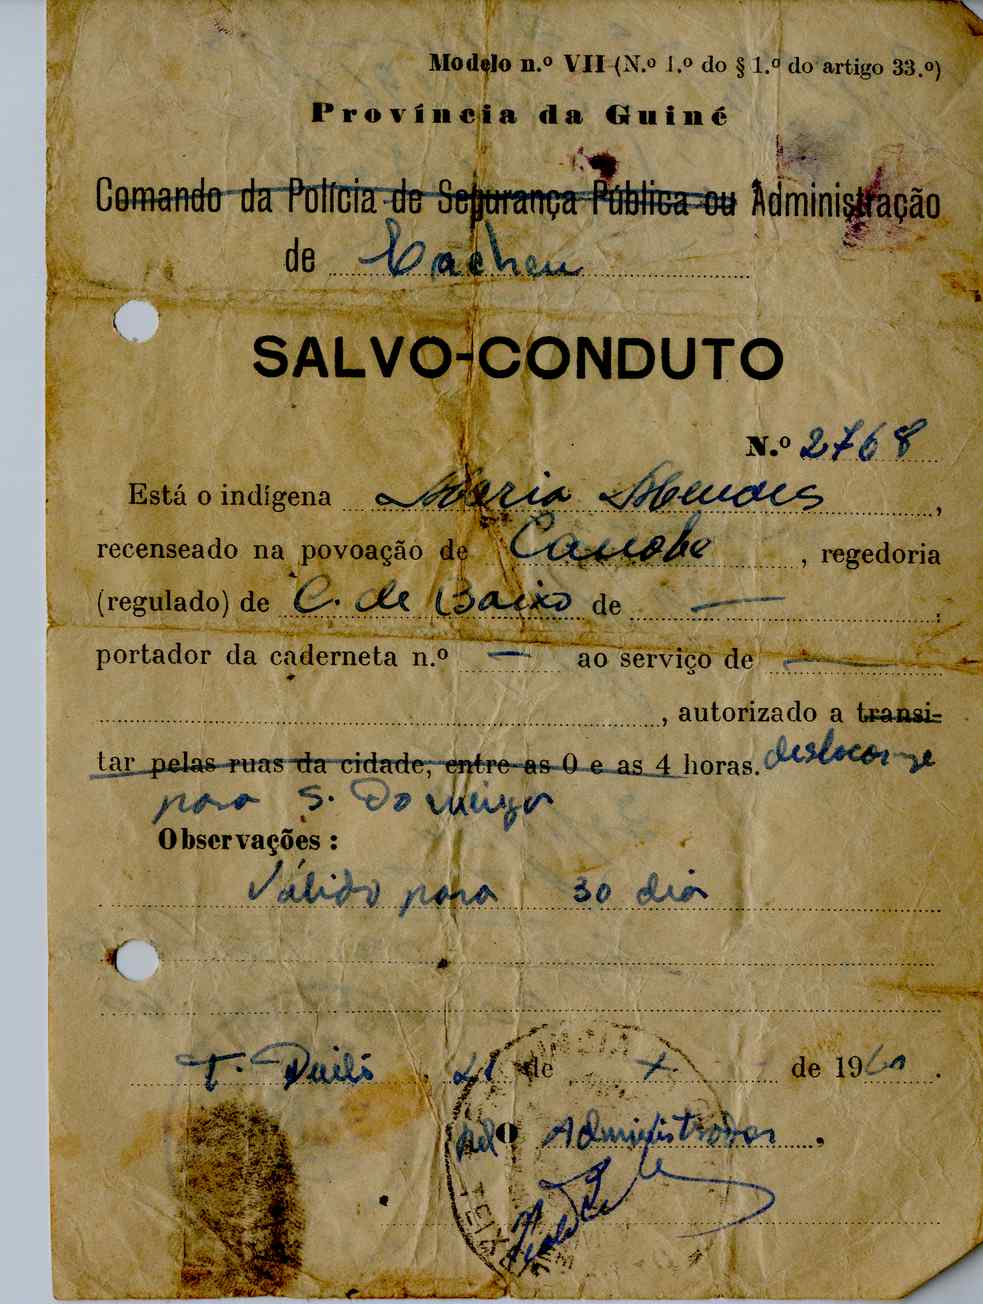 Modelo n.º VII (N.º 1.º do § 1.º do artigo 33.º)
Província da Guiné
Comando da Polícia de Segurança Pública ou Administração
de Cacheu
SALVO-CONDUTO
N.º 2768
Está o indígena Maria Mendes,
recenseado na povoação de Canobe, regedoria
(regulado) de C. de Baixo de —
portador da caderneta n.º — ao serviço de —
, autorizado a transi-
tar pelas ruas da cidade, entre as 0 e as 4 horas. deslocar-se
para S. Domingos
Observações:
Válido para 30 dia
T. Pinto, 21 de X de 1960.
O Administrador,